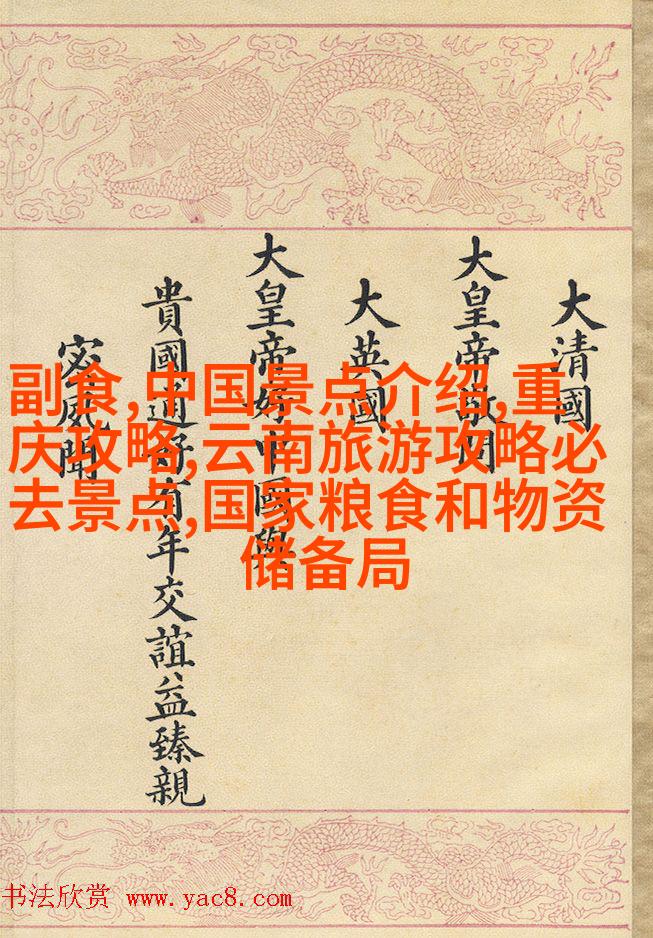 大清國
大皇帝敬問
大英國
大皇帝好中國與
貴國通好有年交誼益臻親
密風聞
副食,中国景点介绍,重
庆攻略,云南旅游攻略必
去景点,国家粮食和物资
储备局
书法欣赏 www.yac8.com